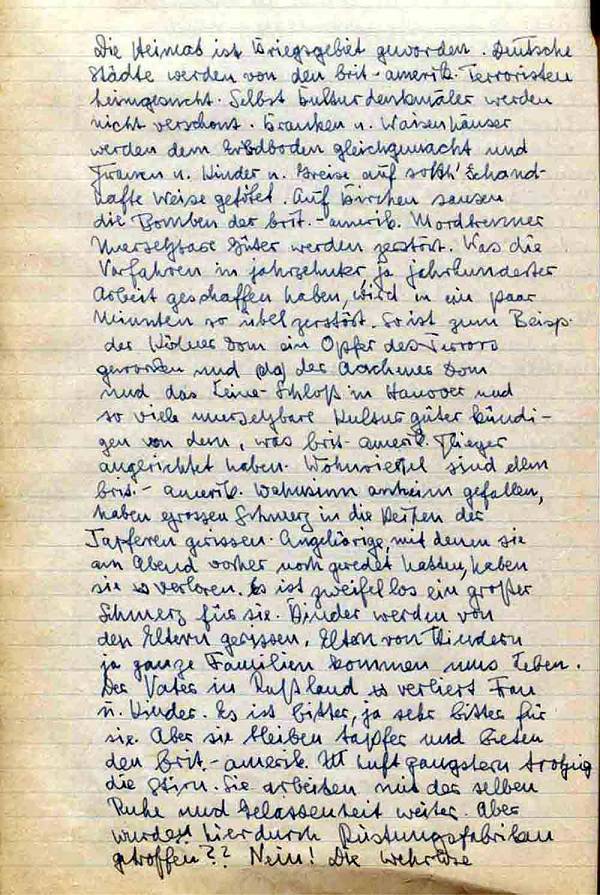 Die Heimat ist Kriegsgebiet geworden. Deutsche
Städte werden von den brit.-amerik. Terroristen
heimgesucht. Selbst Kulturdenkmäler werden
nicht verschont. Kranken u. Waisenhäuser
werden dem Erdboden gleichgemacht und
Frauen u. Kinder u. Greise auf solch' schand-
hafte Weise getötet. Auf Kirchen sausen
die Bomben der brit.-amerik. Mordbrenner
Unersetzbare Güter werden zerstört. Was die
Vorfahren in jahrzehnter, ja jahrhunderter
Arbeit geschaffen haben, wird in ein paar
Minuten so übel zerstört. So ist zum Beisp.
der Kölner Dom ein Opfer des Terrors
geworden und der Aachener Dom
und das Leine-Schloß in Hanover und
so viele unersetzbare Kulturgüter kündi-
gen von dem, was brit-amerik. Flieger
angerichtet haben. Wohnviertel sind dem
brit.- amerik. Wahnsinn anheim gefallen,
haben grossen Schmerz in die Reihen der
Tapferen gerissen. Angehörige, mit denen sie
am Abend vorher noch geredet hatten, haben
sie verloren. Es ist zweifellos ein großer
Schmerz für sie. Kinder werden von
den Eltern gerissen, Eltern von Kindern
ja ganze Familien kommen ums Leben.
Der Vater in Rußland verliert Frau
u. Kinder. Es ist bitter, ja sehr bitter für
sie. Aber sie bleiben tapfer und bieten
den brit.-amerik. Luftgangstern trotzig
die Stirn. Sie arbeiten mit der selben
Ruhe und Gelassenheit weiter. Aber
wurden hierdurch Rüstungsfabriken
getroffen?? Nein! Die wehrlose